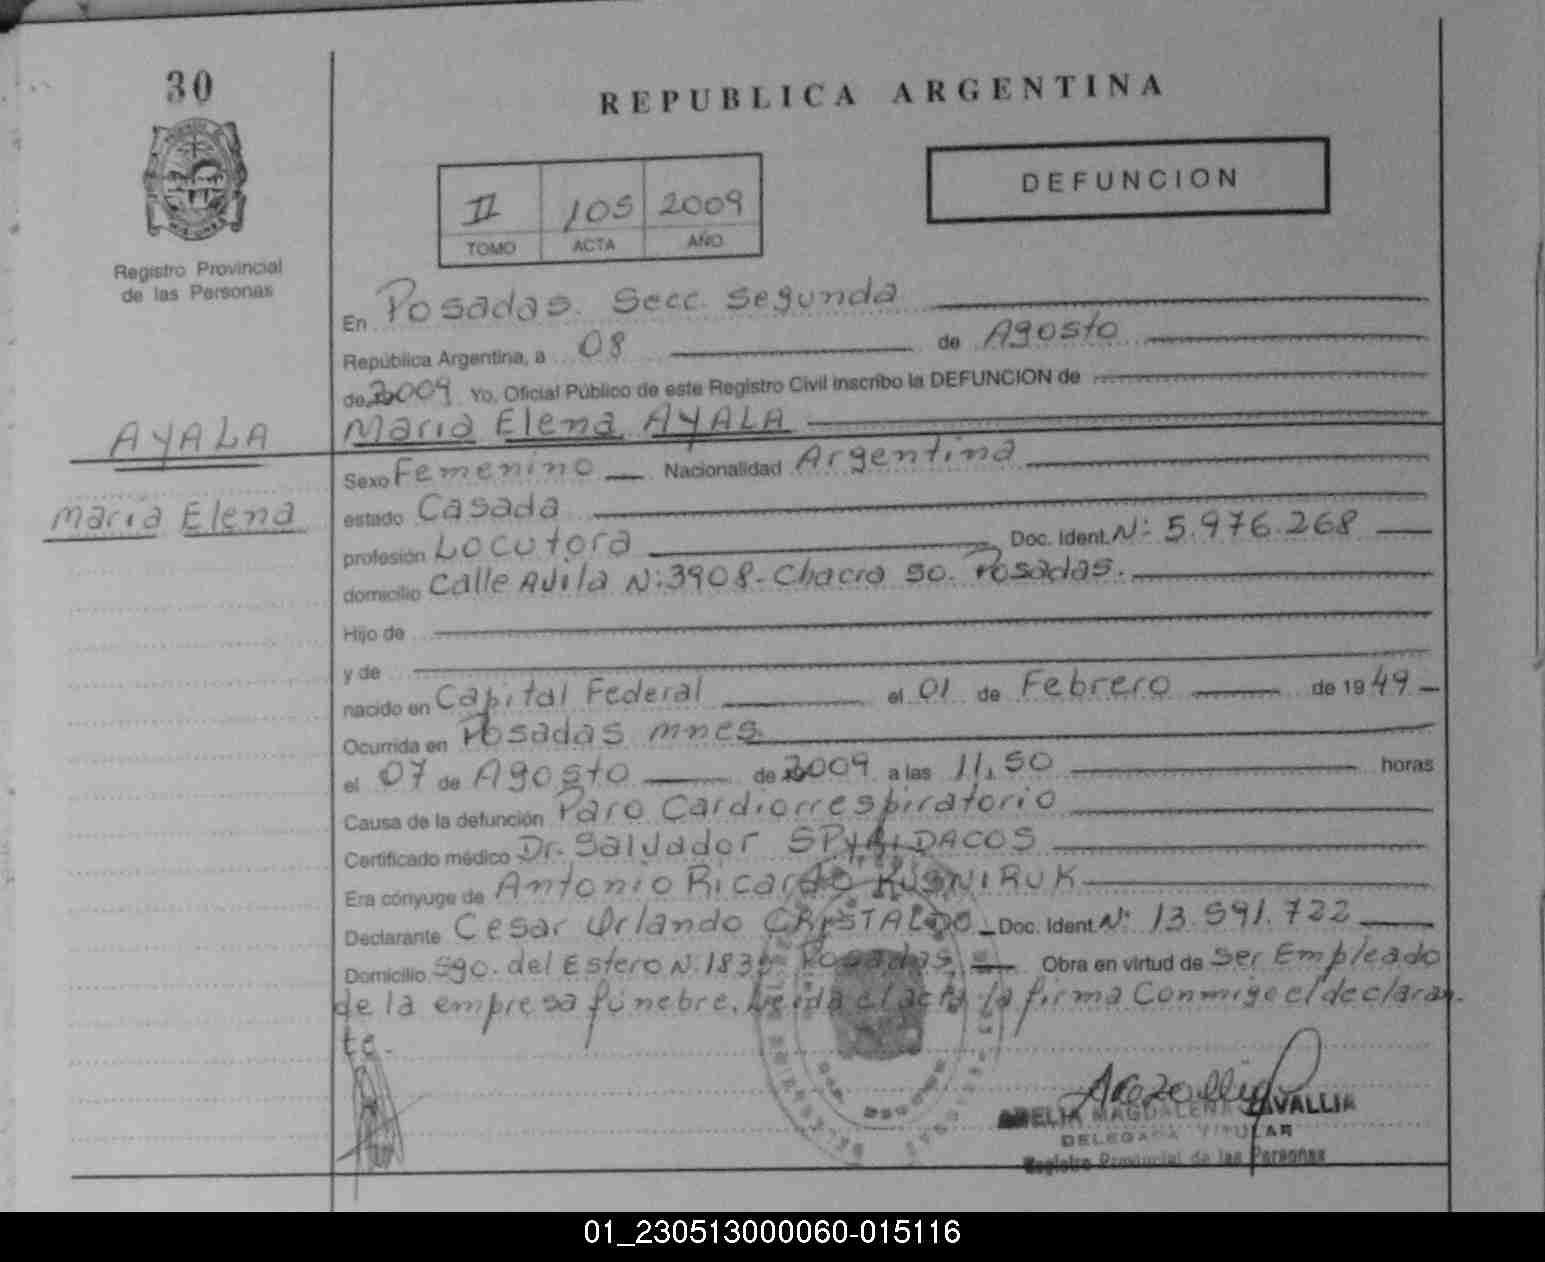 30
REPUBLICA ARGENTINA
DEFUNCION
II 105 2009
TOMO ACTA AÑO
Registro Provincial
de las Personas
En Posadas. Secc. Segunda
República Argentina, a 08 de Agosto
de 2009 Yo, Oficial Público de este Registro Civil inscribo la DEFUNCION de
AYALA
María Elena
María Elena AYALA
Sexo Femenino Nacionalidad Argentina
estado Casada
profesión Locutora Doc. Ident. Nº: 5.976.268
domicilio Calle Avila Nº: 3908. Chacra 50. Posadas.
Hijo de
y de
nacido en Capital Federal el 01 de Febrero de 19 49
Ocurrida en Posadas mnes.
el 07 de Agosto de 2009 a las 11,50 horas
Causa de la defunción Paro Cardiorrespiratorio
Certificado médico Dr. Salvador
Era cónyuge de Antonio Ricardo KUSNIRUK
Declarante Cesar Orlando CRISTALDO Doc. Ident. Nº: 13.591.722
Domicilio Sgo. del Estero Nº Posadas. Obra en virtud de Ser Empleado
de la empresa fúnebre. Leída el acta la firma Conmigo el declaran-
te.
MAGDALENA ZAVALLIA
DELEGADA TITULAR
Registro Provincial de las Personas
01_230513000060-015116